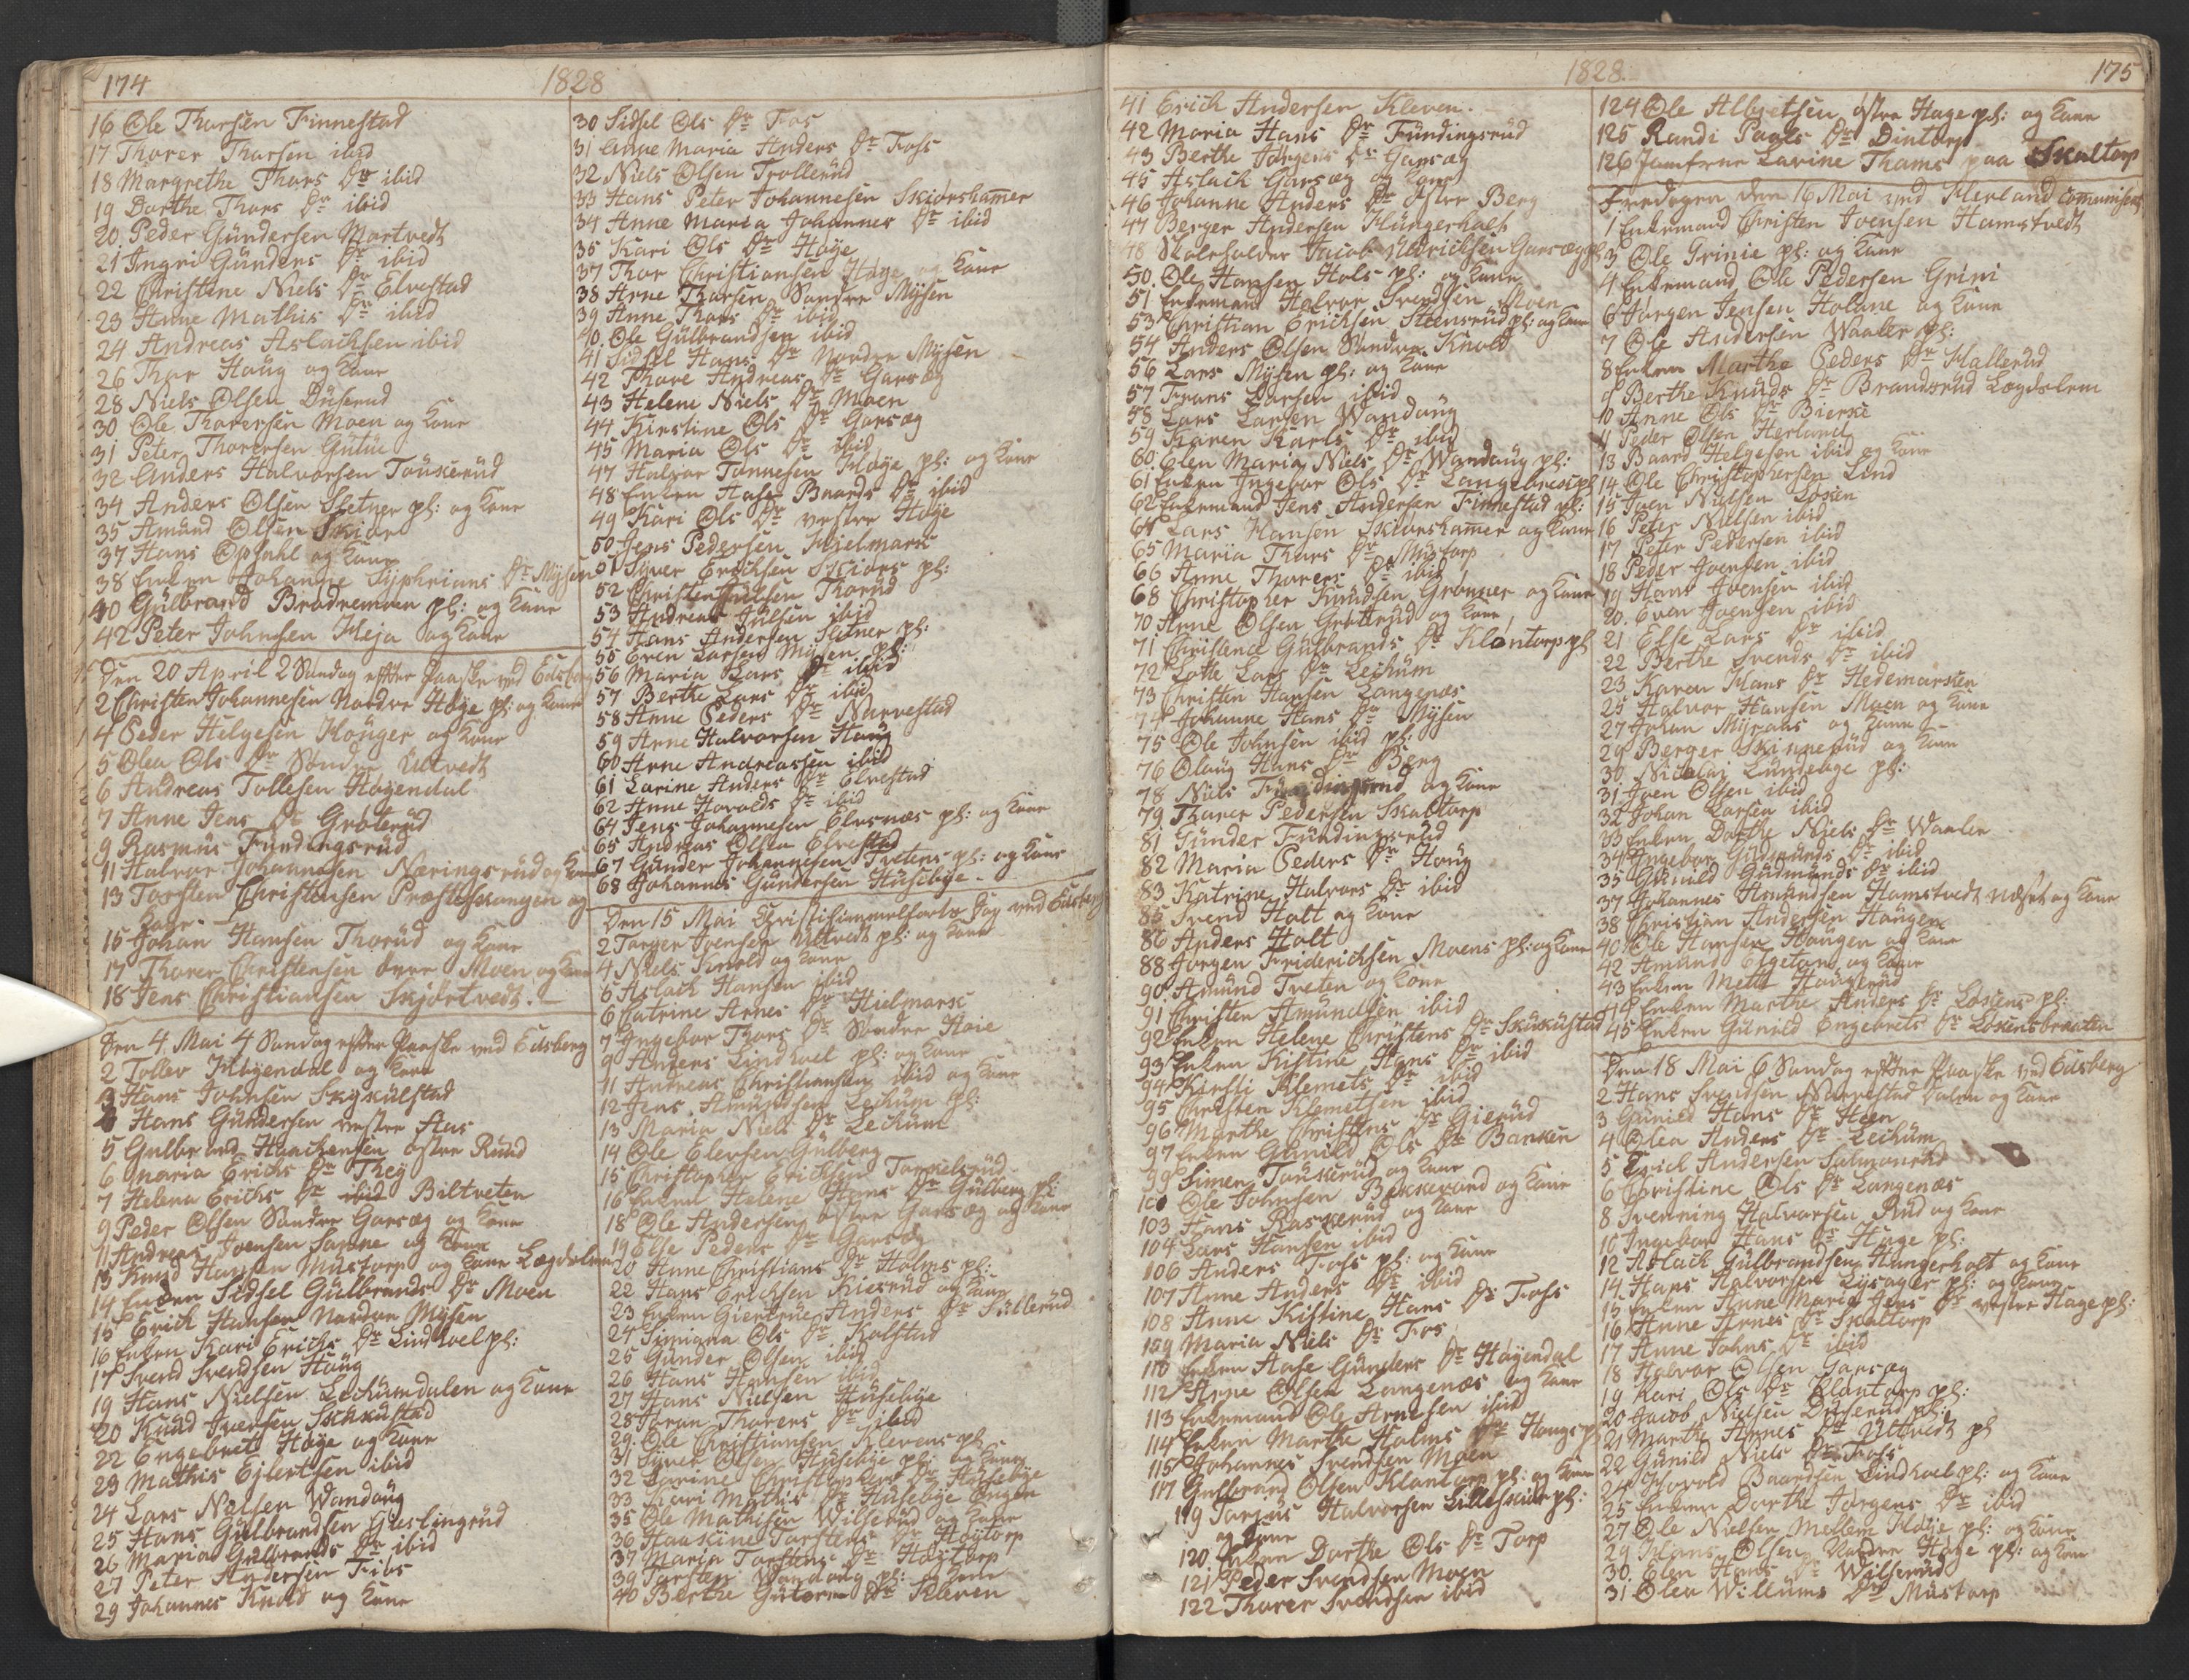 174
1828
16 Ole Thorsen Finnestad
17 Thorer Thorsen ibid
18 Margrethe Thors Dr ibid
19 Dorthe Thors Dr ibid
20 Peder Gündersen Mortvedt
21 Ingri Günders Dr ibid
22 Christine Niels Dr Elvestad
23 Anne Mathis Dr ibid
24 Andreas Aslachsen ibid
26 Thor Haüg og Kone
28 Niels Olsen Düserud
30 Ole Thorersen Moen og Kone
31 Peter Thorersen Gütüe
32 Anders Halvorsen Toüskerüd
34 Anders Olsen Sletner pl: og Kone
35 Amünd Olsen Skiør
37 Hans Opsahl og Kone
38 Enken Johanne Syphrians Dr Mysen
40 Gülbrand Brødremoen pl: og Kone
42 Peter Johnsen Heja og Kone
Den 20 April 2 Søndag efter Paaske ved Edsberg
2 Christen Johannesen Nordre Høye pl: og Kone
4 Peder Helgesen Hønger og Kone
5 Olea Ols Dr Søndre Ütvedt
6 Andreas Tollefsen Høyendal
7 Anne Jens Dr Grøterüd
9 Rasmüs Fündingsrüd
11 Halvor Johannesen Næringsrüd og Kone
13 Torsten Christensen Præsteskongen og
Kone
15 Johan Hansen Thorüd og Kone
17 Thorer Christensen øvre Moen og Kone
18 Jens Christiansen Skjørtvedt.
Den 4 Mai 4 Søndag efter Paaske ved Edsberg
2 Tollev Høyendal og Kone
3 Hans Johnsen Skyskülstad
4 Hans Gündersen vestre Aas
5 Gulbrand Haachensen østre Rüud
6 Maria Erichs Dr They
7 Helena Erichs Dr ibid Biltveten
9 Peder Olsen Søndre Garsæg og Kone
11 Andreas Joensen Sanne og Kone
13 Knud Hansen Müstorp og Kone Lægdslem
14 Enken Sidsel Gülbrands Dr Moen
15 Erich Hansen Nordre Mysen
16 Enken Kari Erichs Dr Lindhoel pl:
17 Svend Svendsen Haüg
19 Hans Nielsen Lechümdalen og Kone
20 Knüd Iversen
22 Engebret Høye og Kone
23 Mathis Ejlertsen ibid
24 Lars Nielsen Wandaüg
25 Hans Gülbrandsen Gieslingrüd
26 Maria Gülbrands Dr ibid
27 Peter Andersen Fibs
29 Johannes Knold og Kone
30 Sidsel Ols Dr Fos
31 Anne Maria Anders Dr Foss
32 Niels Olsen Trollerüd
33 Hans Peter Johannesen Skiørshamer
34 Anne Maria Johannes Dr ibid
35 Kari Ols Dr Høye
37 Thor Christiansen Høye og Kone
38 Arne Thorsen Søndre Mysen
39 Anne Thors Dr ibid
40. Ole Gülbrandsen ibid
41 Sidsel Hans Dr Nordre Mysen
42 Thore Andreas Dr Garsæg
43 Helene Niels Dr Moen
44 Kirstine Ols Dr Garsæg
45 Maria Ols Dr ibid
47 Halvor Tønnesen Høye pl: og Kone
48 Enken Aase Baards Dr ibid
49 Kari Ols Dr vestre Høye
50 Jens Pedersen Hjelmark
51 Syver Erichsen Skiørs pl:
52 Christen Thorüd
53 Andreas Jülsen ibid
54 Hans Andersen Sletner pl:
55 Even Larsen Mysen pl:
56 Maria Lars Dr ibid
57 Berthe Lars Dr ibid
58 Anne Peders Dr Narvestad
59 Arne Halvorsen Haüg
60 Arne Andreassen ibid
61 Larine Anders Dr Elvestad
62 Anne Havolds Dr ibid
64 Jens Johannesen Elvsnæs pl: og Kone
65 Andreas Olsen Elvestad
67 Günder Johannesen Tretens pl: og Kone
68 Johannes Gündersen Hüsebye
Den 15 Mai Christihimmelfarts Dag ved Edsberg
2 Torger Joensen Ültvedt pl: og Kone
4 Niels Knold og Kone
5 Aslach Hansen ibid
6 Catrine Arnes Dr Hielmark
7 Ingebor Thors Dr Søndre Høie
9 Anders Lindhoel pl: og Kone
11 Andreas Christiansen ibid og Kone
12 Jens Amündsen Lechüm pl:
13 Maria Niels Dr Lechüm
14 Ole Elevsen Gülberg
15 Christopher Erichsen Tommelsrüd
16 Enken Helene Hans Dr Gülberg pl:
18 Ole Andersen østre Garsæg og Kone
19 Else Peders Dr Garsæg
20 Anne Christians Dr Holms pl:
22 Hans Erichsen Kiersrüd og Kone
23 Enken Giertrüe Anders Dr Süllerüd
24 Simiana Ols Dr Kolstad
25 Günder Olsen ibid
26 Hans Hansen ibid
27 Hans Nielsen Hüsebye
28 Jøran Thorers Dr ibid
29. Ole Christiansen Klevens pl:
31 Syver Olsen Hüsebye pl: og Kone
32 Larine Christophers Dr Hüsebye
33 Kari Mathis Dr Hüsebye Engen
35 Ole Mathisen Wilserüd og Kone
36 Haaskine Torstens Dr Høytorp
37 Maria Torstens Dr Høytorp
39 Torsten Wandaüg pl: og Kone
40 Berthe Gütorms Dr Kleven
1828.
175
41 Erich Andersen Kleven.
42 Maria Hans Dr Fündingsrüd
43 Berthe Jørgens Dr Garsæg
45 Aslach Garsæg og Kone
46 Johanne Anders Dr østre Berg
47 Berger Andersen Hüngerholt
48 Skoleholder Jacob Uldrichsen Garsæg pl:
50. Ole Hansen Hols pl: og Kone
51 Enkemand Halvor Svendsen Moen
53 Christian Erichsen Steensrüd pl: og Kone
54 Anders Olsen Søndre Knold
56 Lars Mysen pl: og Kone
57 Frans Larsen ibid
58 Lars Larsen Wandaüg
59 Karen Karls Dr ibid
60. Elen Maria Niels Dr Wandaüg pl:
61 Enken Ingebor Ols Dr Langebrechs pl
62 Enkemand Jens Andersen Finnestad pl:
64 Lars Hansen Skiørshamer og Kone
65 Maria Thors Dr Müstorp
66 Anne Thorers Dr ibid
68 Christopher Knüdsen Grønner og Kone
70 Arne Olsen Grøtterüd og Kone
71 Christence Gülbrands Dr Kløntorp pl
72 Lotte Lars Dr Lechüm
73 Christen Hansen Langenæs
74 Johanne Hans Dr Mysen
75 Ole Johnsen ibid pl:
76 Olaüg Hans Dr Berg
78 Niels Fündingsrud og Kone
79 Thorer Pedersen Skaltorp
81 Günder Fündingsrüd
82 Maria Peders Dr Haüg
83 Katrine Halvors Dr ibid
85 Svend Holt og Kone
86 Anders Holt
88 Jørgen Friderichsen Moens pl: og Kone
90 Amünd Treten og Kone
91 Christen Amündsen ibid
92 Enken Helene Christens Dr Sküküstad
93 Enken Kistine Hans Dr ibid
94 Kirsti Klemets Dr ibid
95 Christen Klemetsen ibid
96 Marthe Christens Dr Gierüd
97 Enken Günild Ols Dr Banken
99 Simen Toüskerüd og Kone
101 Ole Johnsen Bekkevard og Kone
103 Hans Raskerüd og Kone
104 Lars Hansen ibid
106 Anders Foss pl: og Kone
107 Anne Anders Dr ibid
108 Anne Kistine Hans Dr Foss
109 Maria Niels Dr Fos
110 Enken Aase Günders Dr Høyendal
112 Arne Olsen Langenæs og Kone
113 Enkemand Ole Arnesen ibid
114 Enken Marthe Holms Dr Haugs pl
115 Johannes Svendsen Moen
117 Gulbrand Olsen Kløntorp pl: og Kone
119 Tarjüs Halvorsen Lilleskiør pl:
og Kone
120. Enken Dorthe Ols Dr Torp
121 Peder Svendsen Moen
122 Thorer Svendsen ibid
124 Ole Albretsen østre Hage pl: og Kone
125 Randi Pauls Dr Dintorp
126 Jomfrue Lavine Thams paa Skaltorp
Fredagen den 16 Mai ved Herland Communiserede
1 Enkemand Christen Joensen Hamstvedt
3 Ole Grinie pl: og Kone
4 Enkemand Ole Pedersen Grini
6 Jørgen Jensen Holane og Kone
7 Ole Andersen Waaler pl:
8 Enken Marthe Peders Dr Hallerüd
9 Berthe Knüds Dr Brandsrüd Lægdslem
10 Anne Ols Dr Bierke
11 Peder Olsen Herland
13 Baard Helgesøn ibid og Kone
14 Ole Christophersen Lind
15 Joen Nielsen Løsen
16 Peter Nielsen ibid
17 Peter Pedersen ibid
18 Peder Joensen ibid
19 Hans Joensen ibid
20. Even Joensen ibid
21 Else Lars Dr ibid
22 Berthe Svends Dr ibid
23 Karen Hans Dr Hedemarken
25 Halvor Hansen Moen og Kone
27 Johan Myraas og Kone
29 Berger Skinnerüd og Kone
30. Nicolai Lündebye pl:
31 Joen Olsen ibid
32 Johan Larsen ibid
33 Enken Dorthe Niels Dr Waaler
34 Ingebor Güdmunds Dr ibid
35 Günild Gudmunds Dr ibid
37 Johannes Amundsen Hamstvedt Næset og Kone
38 Christian Andersen Haügen
40 Ole Hansen Haügen og Kone
42 Amünd Elgetun og Kone
43 Enken Mette Haügerüd
44 Enken Marthe Anders Dr Løsens pl:
45 Enken Günild Engebrets Dr Løsensbraaten
Den 18 Mai 6 Søndag efter Paaske ved Edsberg
2 Hans Svendsen Narvestad Dalen og Kone
3 Günild Hans Dr Heen
4 Olea Anders Dr Lechüm
5 Erich Andersen Salmonrüd
6 Christine Ols Dr Langenæs
8 Svenning Halvorsen Rüd og Kone
10 Ingebor Hans Dr Hage pl:
12 Aslach Gülbrandsen Hüngerholt og Kone
14 Hans Halvorsen Lysager pl: og Kone
15 Enken Anne Maria Jens Dr vestre Hage pl:
16 Anne Arnes Dr Skaltorp
17 Anne Johns Dr ibid
18 Halvor Olsen Garsæg
19 Kari Ols Dr Kløntorp pl:
20 Jacob Nielsen Düserud pl:
21 Marthe Arnes Dr Ültvedt pl
22 Günild Niels Dr Foss
24 Havold Baardsen Lindhoel pl: og Kone
25 Enken Dorthe Jørgens Dr ibid
27 Ole Nielsen Mellem Høye pl: og Kone
29 Hans Olsen Nordre Høye pl: og Kone
30. Elen Hans Dr Wilserüd
31 Olea Willums Dr Müstorp